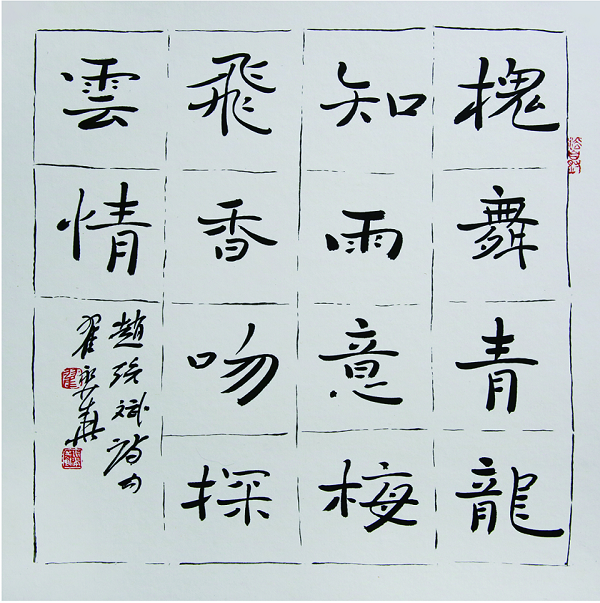 槐舞青龍
知雨意梅
飛香吻探
雲情
趙斌詩句
翟華